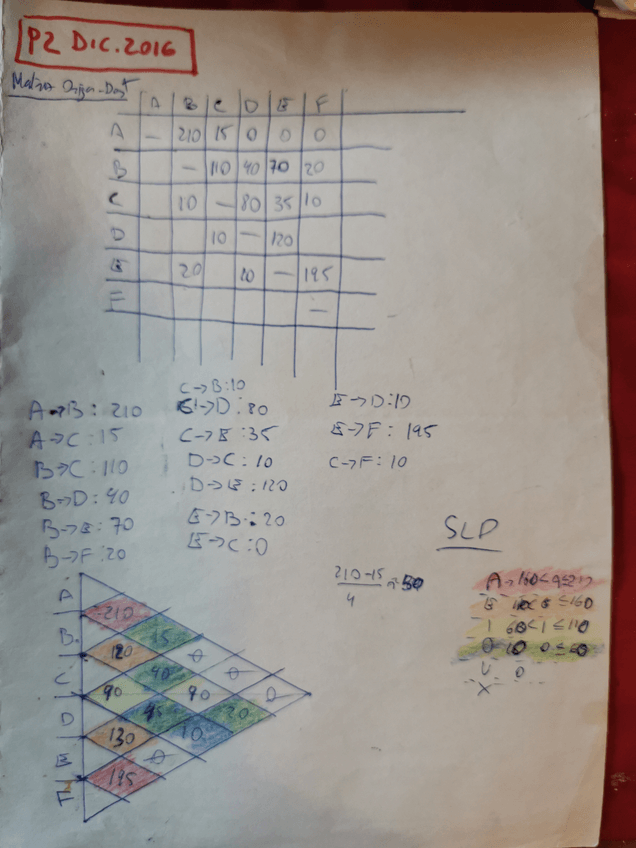 P2 DIC.2016
Matriz Origen-Dest
A B C D E F
A — 210 15 0 0 0
B — 110 40 70 20
C 10 — 80 35 10
D 10 — 120
E 20 10 — 195
F —
C→B:10
A→B: 210
C→D: 80
E→D:10
A→C:15
C→E:35
E→F: 195
B→C:110
D→C:10
C→F:10
B→D:40
D→E:120
B→E:70
E→B:20
B→F:20
E→C:0
SLP
210-15
4
≈50
A
B
C
D
E
F
210
120
90
130
195
15
40
45
0
0
90
10
0
20
0
I 60<I≤110
U 0
X